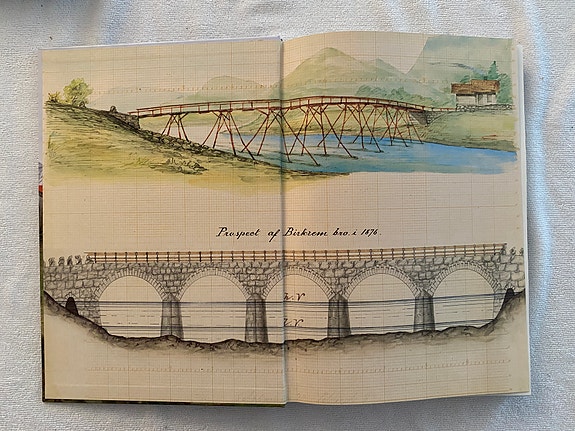 Prospect af Birkrem bro. i 1876.
h.V
l.V